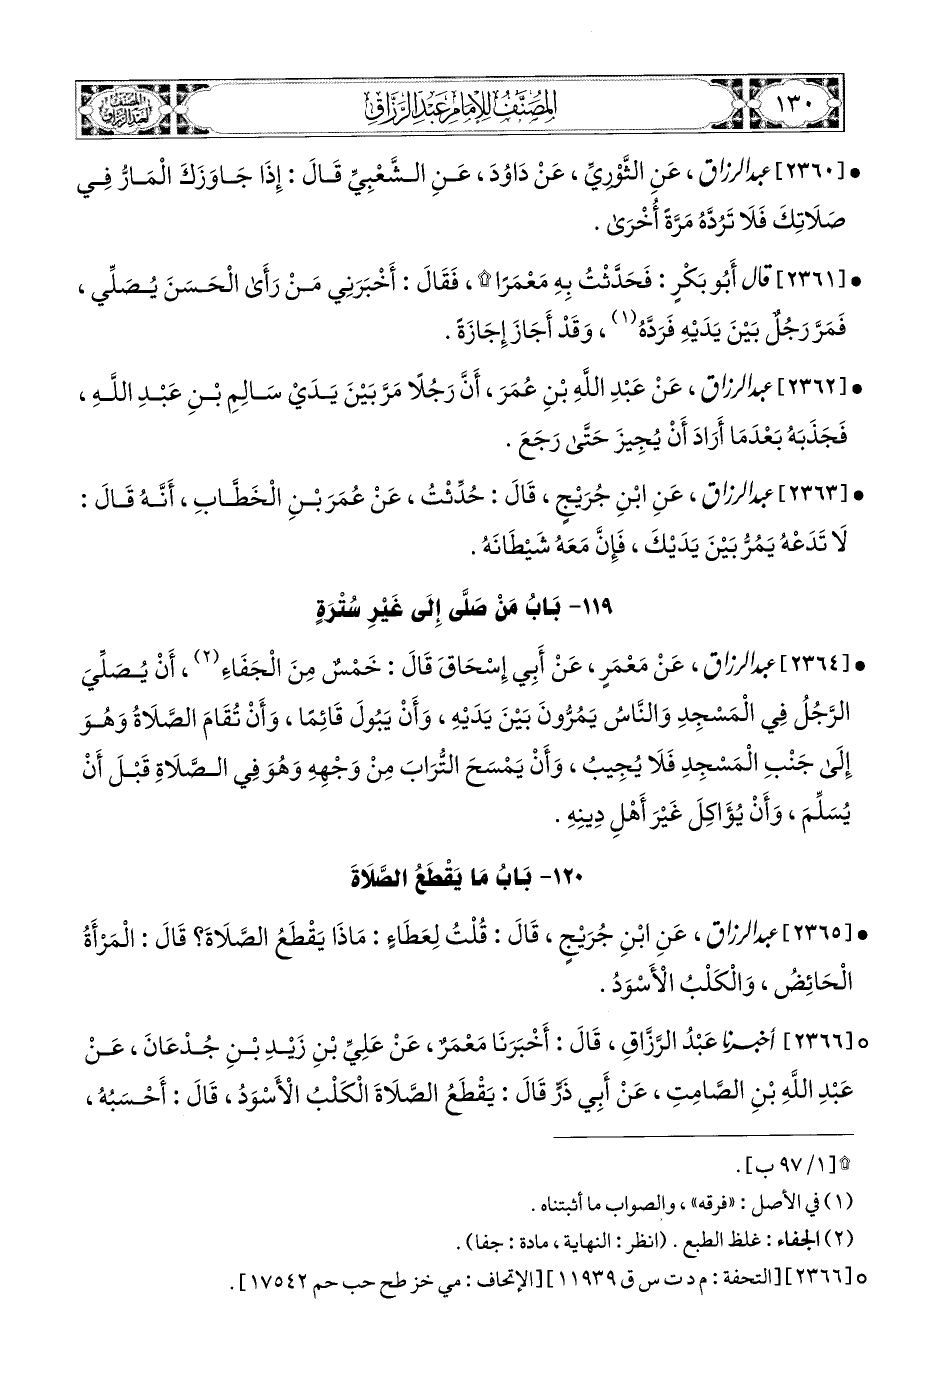 ١٣٠
المصنف للإمام عبد الرزاق
المصنف لعبد الرزاق
• [٢٣٦٠] عبد الرزاق، عَنِ الثَّوْرِيِّ، عَنْ دَاوُدَ، عَنِ الشَّعْبِيِّ قَالَ: إِذَا جَاوَزَكَ الْمَارُّ فِي
صَلَاتِكَ فَلَا تَرُدَّهُ مَرَّةً أُخْرَىٰ.
• [٢٣٦١] قال أَبُو بَكْرٍ: فَحَدَّثْتُ بِهِ مَعْمَرًا۩، فَقَالَ: أَخْبَرَنِي مَنْ رَأَىٰ الْحَسَنَ يُصَلِّي،
فَمَرَّ رَجُلٌ بَيْنَ يَدَيْهِ فَرَدَّهُ(١)، وَقَدْ أَجَازَ إِجَازَةً.
• [٢٣٦٢] عبد الرزاق، عَنْ عَبْدِ اللَّهِ بْنِ عُمَرَ، أَنَّ رَجُلًا مَرَّ بَيْنَ يَدَيْ سَالِمِ بْنِ عَبْدِ اللَّهِ،
فَجَذَبَهُ بَعْدَمَا أَرَادَ أَنْ يُجِيزَ حَتَّىٰ رَجَعَ.
• [٢٣٦٣] عبد الرزاق، عَنِ ابْنِ جُرَيْجٍ، قَالَ: حُدِّثْتُ، عَنْ عُمَرَ بْنِ الْخَطَّابِ، أَنَّهُ قَالَ:
لَا تَدَعْهُ يَمُرُّ بَيْنَ يَدَيْكَ، فَإِنَّ مَعَهُ شَيْطَانَهُ.
١١٩- بَابُ مَنْ صَلَّى إِلَى غَيْرِ سُتْرَةٍ
• [٢٣٦٤] عبد الرزاق، عَنْ مَعْمَرٍ، عَنْ أَبِي إِسْحَاقَ قَالَ: خَمْسٌ مِنَ الْجَفَاءِ(٢)، أَنْ يُصَلِّيَ
الرَّجُلُ فِي الْمَسْجِدِ وَالنَّاسُ يَمُرُّونَ بَيْنَ يَدَيْهِ، وَأَنْ يَبُولَ قَائِمًا، وَأَنْ تُقَامَ الصَّلَاةُ وَهُوَ
إِلَىٰ جَنْبِ الْمَسْجِدِ فَلَا يُجِيبُ، وَأَنْ يَمْسَحَ التُّرَابَ مِنْ وَجْهِهِ وَهُوَ فِي الصَّلَاةِ قَبْلَ أَنْ
يُسَلِّمَ، وَأَنْ يُؤَاكِلَ غَيْرَ أَهْلِ دِينِهِ.
١٢٠- بَابُ مَا يَقْطَعُ الصَّلَاةَ
• [٢٣٦٥] عبد الرزاق، عَنِ ابْنِ جُرَيْجٍ، قَالَ: قُلْتُ لِعَطَاءٍ: مَاذَا يَقْطَعُ الصَّلَاةَ؟ قَالَ: الْمَرْأَةُ
الْحَائِضُ، وَالْكَلْبُ الْأَسْوَدُ.
○ [٢٣٦٦] أخبرنا عَبْدُ الرَّزَّاقِ، قَالَ: أَخْبَرَنَا مَعْمَرٌ، عَنْ عَلِيِّ بْنِ زَيْدِ بْنِ جُدْعَانَ، عَنْ
عَبْدِ اللَّهِ بْنِ الصَّامِتِ، عَنْ أَبِي ذَرٍّ قَالَ: يَقْطَعُ الصَّلَاةَ الْكَلْبُ الْأَسْوَدُ، قَالَ: أَحْسَبُهُ،
۩[١/ ٩٧ ب].
(١) في الأصل: «فرقه»، والصواب ما أثبتناه.
(٢) الجفاء: غلظ الطبع. (انظر: النهاية، مادة: جفا).
○ [٢٣٦٦] [التحفة: م د ت س ق ١١٩٣٩] [الإتحاف: مي خز طح حب حم ١٧٥٤٢].